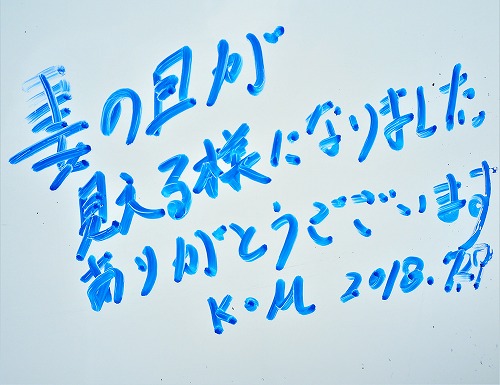 妻の目が
見える様になりました
ありがとうございます
K.M 2018.